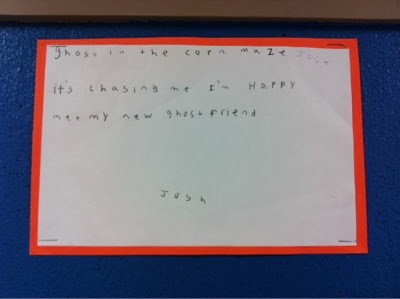 ghost in the corn maze
it's chasing me I'm Happy
met my new ghost friend
Josh